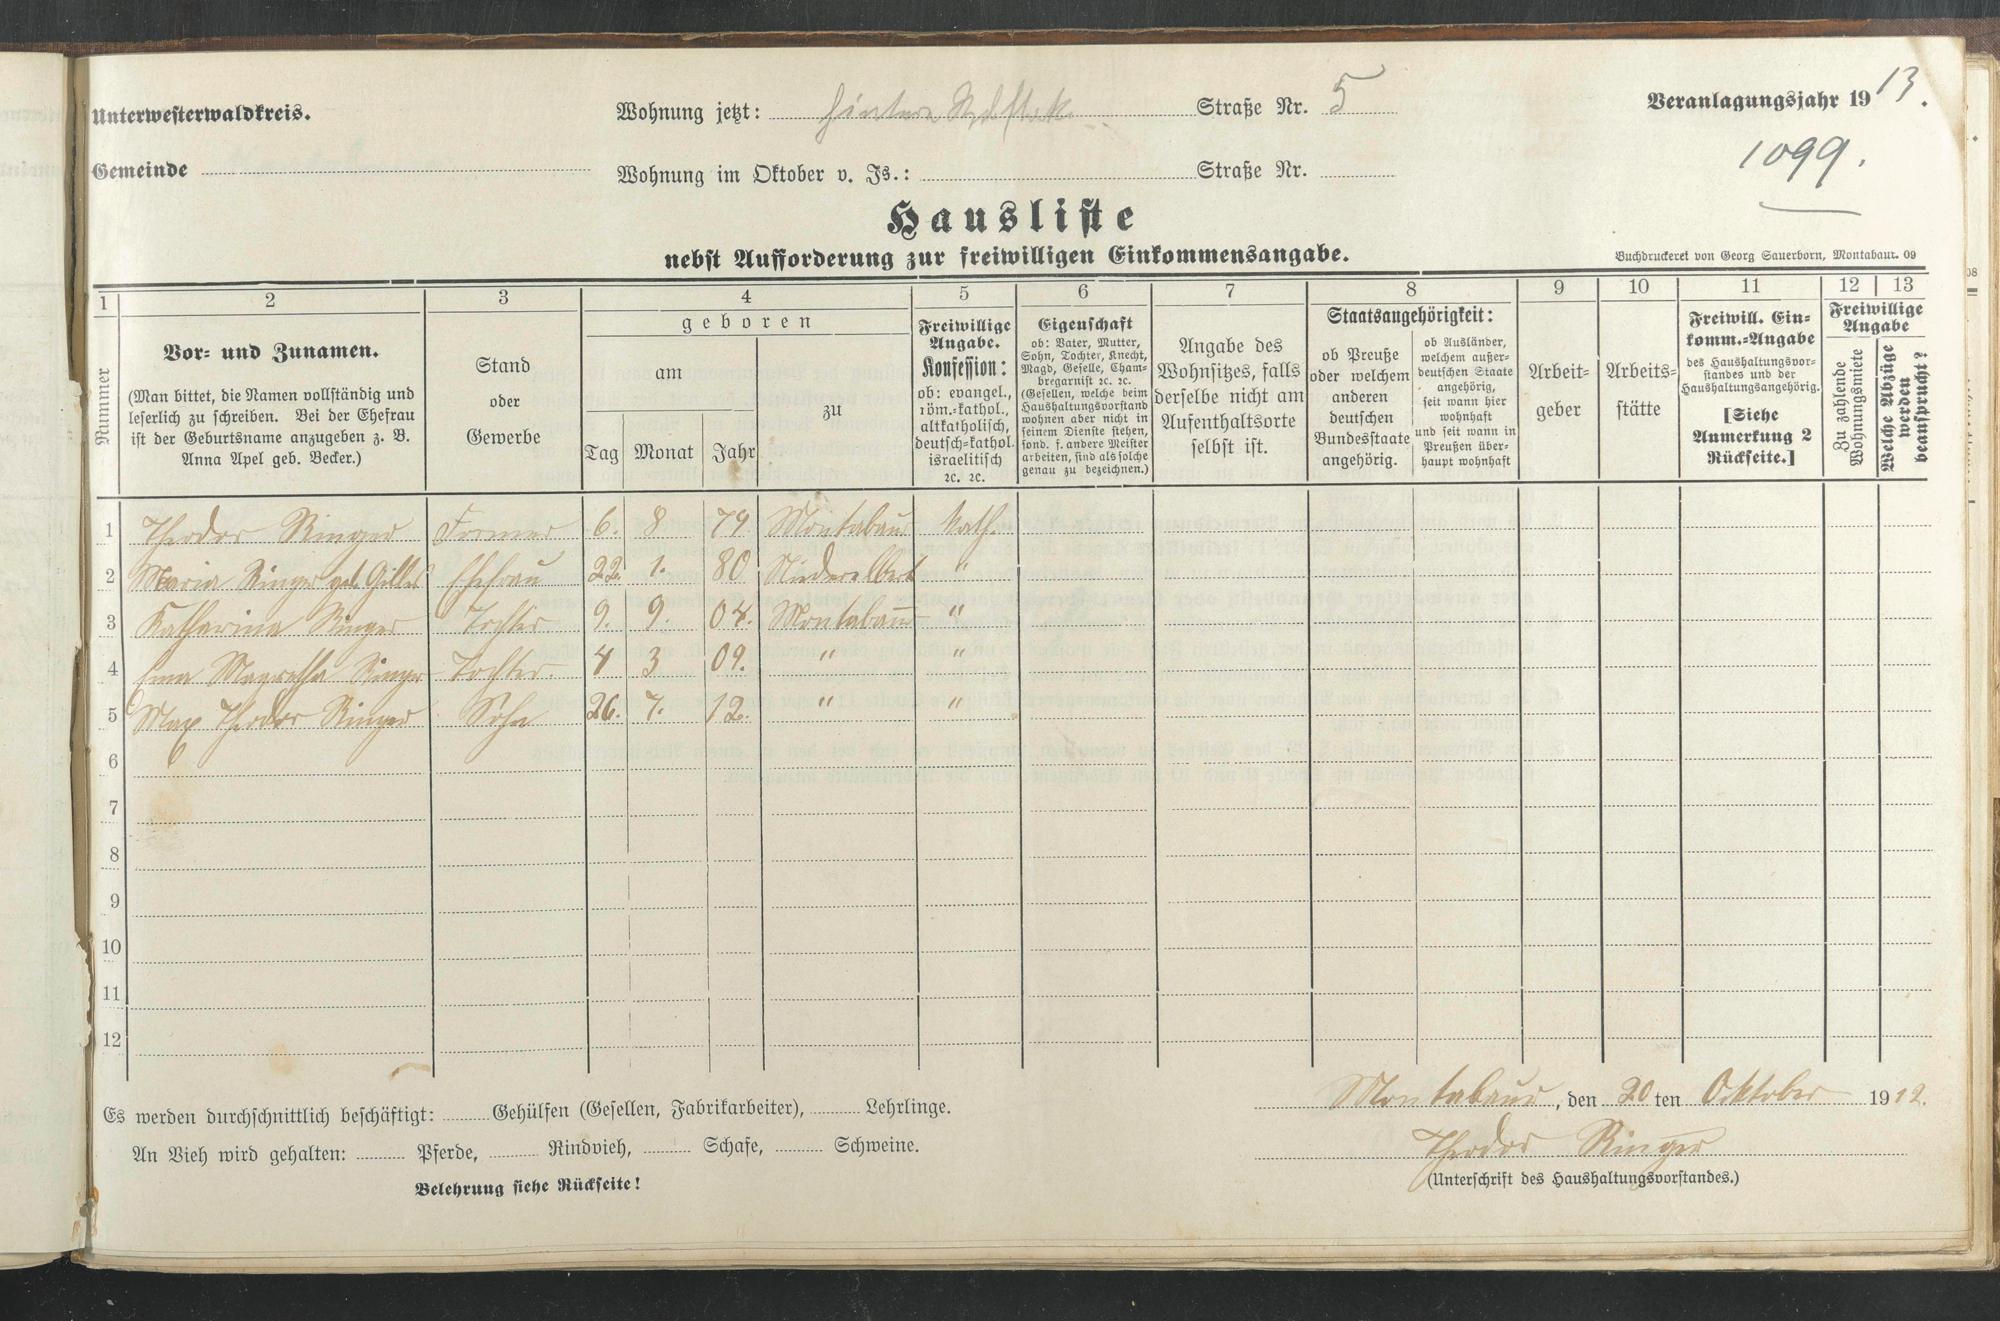 Unterwesterwaldkreis.
Wohnung jetzt: Hintere Straße Nr. 5
Veranlagungsjahr 1913.
Gemeinde
Wohnung im Oktober v. Js.: Straße Nr.
1099.
Hausliste
nebst Aufforderung zur freiwilligen Einkommensangabe.
Buchdruckerei von Georg Sauerborn, Montabaur. 09
1 2 3 4 5 6 7 8 9 10 11 12 13
Nummer
Vor- und Zunamen.
(Man bittet, die Namen vollständig und
leserlich zu schreiben. Bei der Ehefrau
ist der Geburtsname anzugeben z. B.
Anna Apel geb. Becker.)
Stand
oder
Gewerbe
geboren
am
Tag Monat Jahr
zu
Freiwillige
Angabe.
Konfession:
ob: evangel.,
röm.-kathol.,
altkatholisch,
deutsch-kathol.
israelitisch
2c. 2c.
Eigenschaft
ob: Vater, Mutter,
Sohn, Tochter, Knecht,
Magd, Geselle, Cham-
bregarnist 2c. 2c.
(Gesellen, welche beim
Haushaltungsvorstand
wohnen aber nicht in
seinem Dienste stehen,
sond. f. andere Meister
arbeiten, sind als solche
genau zu bezeichnen.)
Angabe des
Wohnsitzes, falls
derselbe nicht am
Aufenthaltsorte
selbst ist.
Staatsangehörigkeit:
ob Preuße
oder welchem
anderen
deutschen
Bundesstaate
angehörig.
ob Ausländer,
welchem außer-
deutschen Staate
angehörig,
seit wann hier
wohnhaft
und seit wann in
Preußen über-
haupt wohnhaft
Arbeit-
geber
Arbeits-
stätte
Freiwill. Ein-
komm.-Angabe
des Haushaltungsvor-
standes und der
Haushaltungsangehörig.
[Siehe
Anmerkung 2
Rückseite.]
Freiwillige
Angabe
Zu zahlende
Wohnungsmiete
Welche Abzüge
werden
beansprucht?
1 Theodor Ringer Former 6. 8 79 Montabaur kath.
2 Maria Ringer geb. Gilles Ehefrau 22. 1. 80 Niederelbert "
3 Katharina Ringer Tochter 9. 9. 04. Montabaur "
4 Magretha Ringer Tochter. 4 3 09. " "
5 Max Theodor Ringer Sohn 26. 7. 12. " "
6
7
8
9
10
11
12
Es werden durchschnittlich beschäftigt: Gehülfen (Gesellen, Fabrikarbeiter), Lehrlinge.
Montabaur, den 20ten Oktober 1912.
An Vieh wird gehalten: Pferde, Rindvieh, Schafe, Schweine.
Theodor Ringer
Belehrung siehe Rückseite!
(Unterschrift des Haushaltungsvorstandes.)